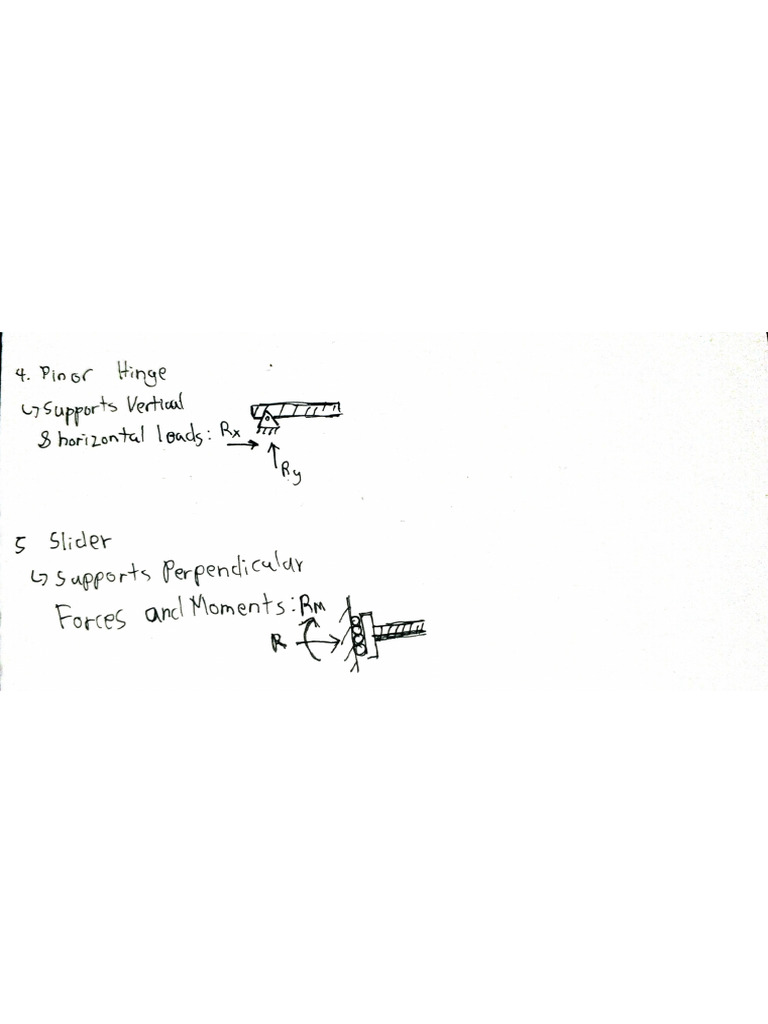 4. Pin or Hinge
↳ Supports Vertical
& horizontal loads: Rx
Ry
5 Slider
↳ Supports Perpendicular
Forces and Moments: RM
R